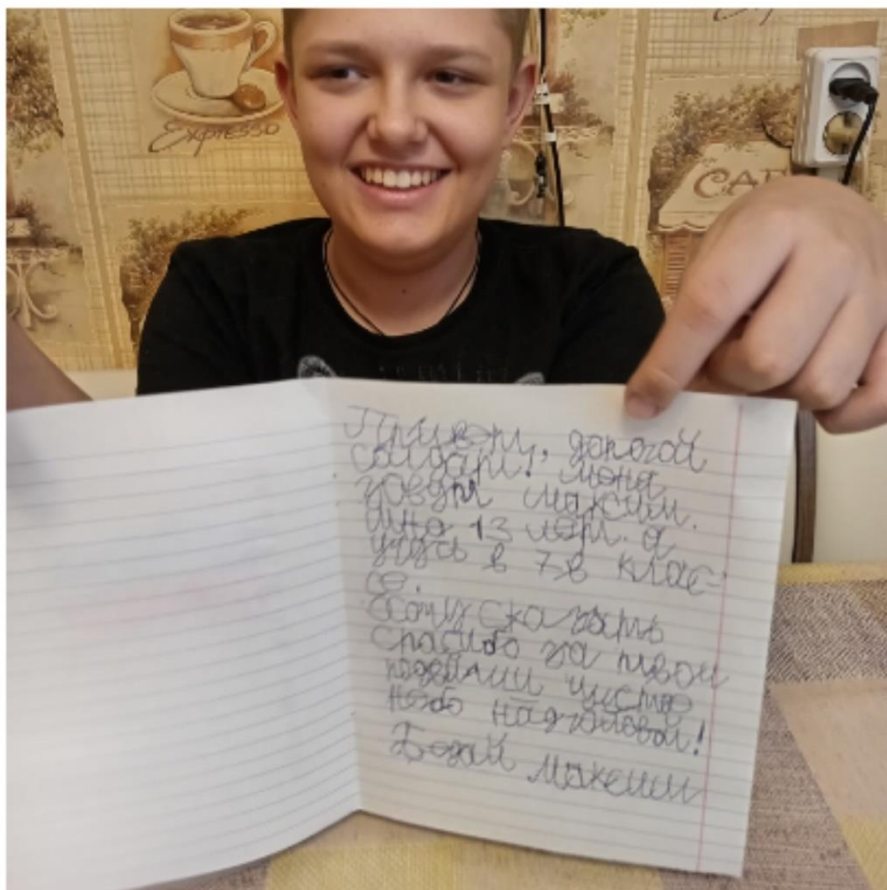 Expresso
CAF
Привет, дорогой
солдат! меня
зовут максим.
мне 13 лет. я
учусь в 7в клас-
се.
Хочу сказать
спасибо за твои
подвиги чистое
небо над головой!
максим